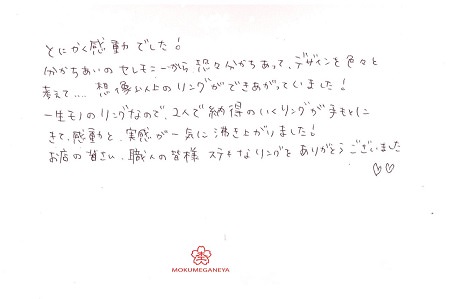 とにかく感動でした!
分かちあいのセレモニーから 恐々分かちあって、デザインを色々と
考えて.... 想像以上のリングができあがっていました!
一生モノのリングなので、2人で納得のいくリングが手もとに
きて、感動と、実感が一気に沸き上がりました!
お店の皆さん、職人の皆様 ステキなリングを ありがとうございました
♡♡
MOKUMEGANEYA